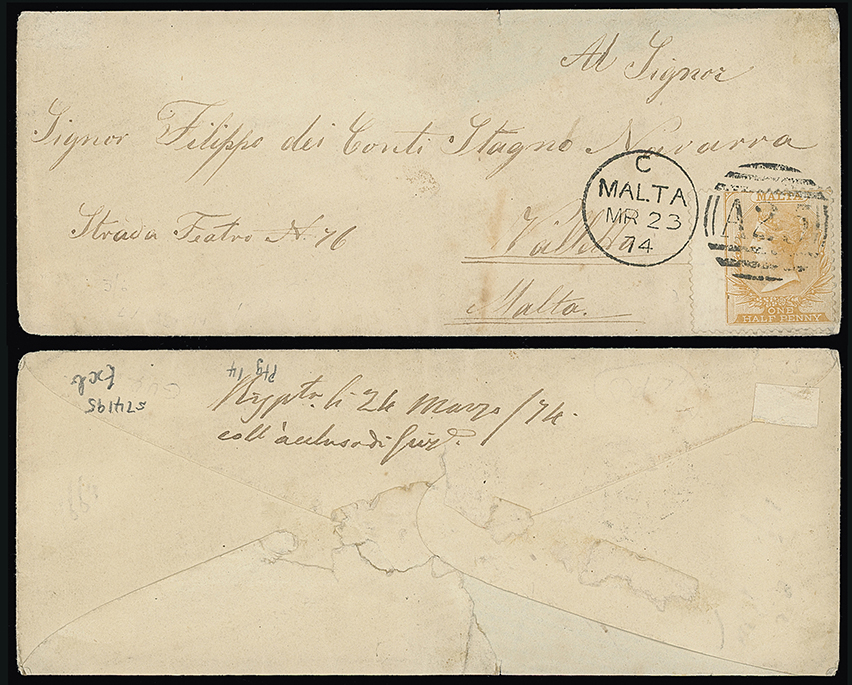 Al Signor
Signor Filippo dei Conti Stagno Navarra
Strada Teatro N. 76
Valletta
Malta.
C
MALTA
MR 23
74
A25
MALTA
ONE
HALF PENNY
Ptg 14
Exch
547195
li 24 Marzo /74.
coll'accluso di